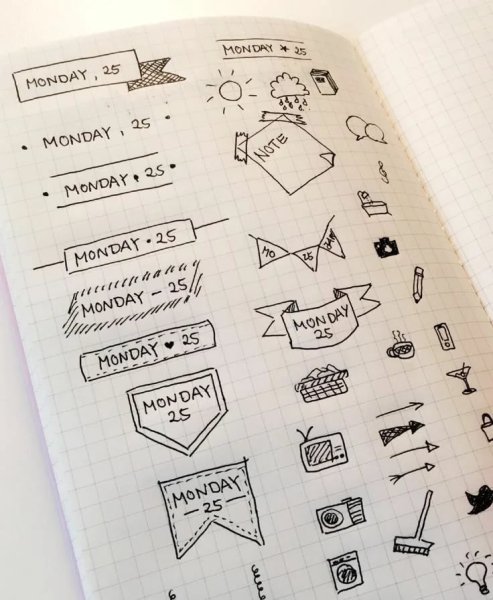 MONDAY, 25
MONDAY, 25
MONDAY • 25
MONDAY • 25
MONDAY — 25
MONDAY ♥ 25
MONDAY
25
MONDAY
— 25 —
MONDAY * 25
NOTE
MO
25
MONDAY
25